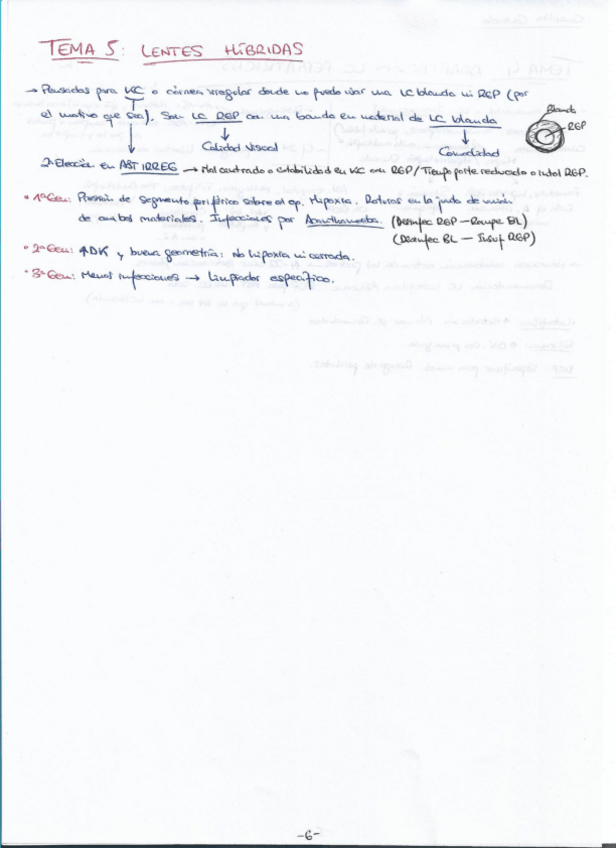 TEMA 5: LENTES HÍBRIDAS
→ Pensadas para KC o córnea irregular donde no pueda usar una LC blanda ni RGP (por
el motivo que sea). Son LC RGP con una banda en material de LC blanda
Blanda
RGP
Calidad Visual
Comodidad
2ª Elección en AST IRREG → Mal centrado o estabilidad en KC con RGP / Tiempo porte reducido o intol RGP.
• 1ª Gen: Presión de segmento periférico sobre el ap. Hipoxia. Roturas en la junta de unión
de ambos materiales. Infecciones por Acanthamoeba. (Desinfec RGP – Rompe BL)
(Desinfec BL – Insuf RGP)
• 2ª Gen: ↑DK y buena geometría: No hipoxia ni cerrada.
• 3ª Gen: Menos infecciones → Limpiador específico.
-6-